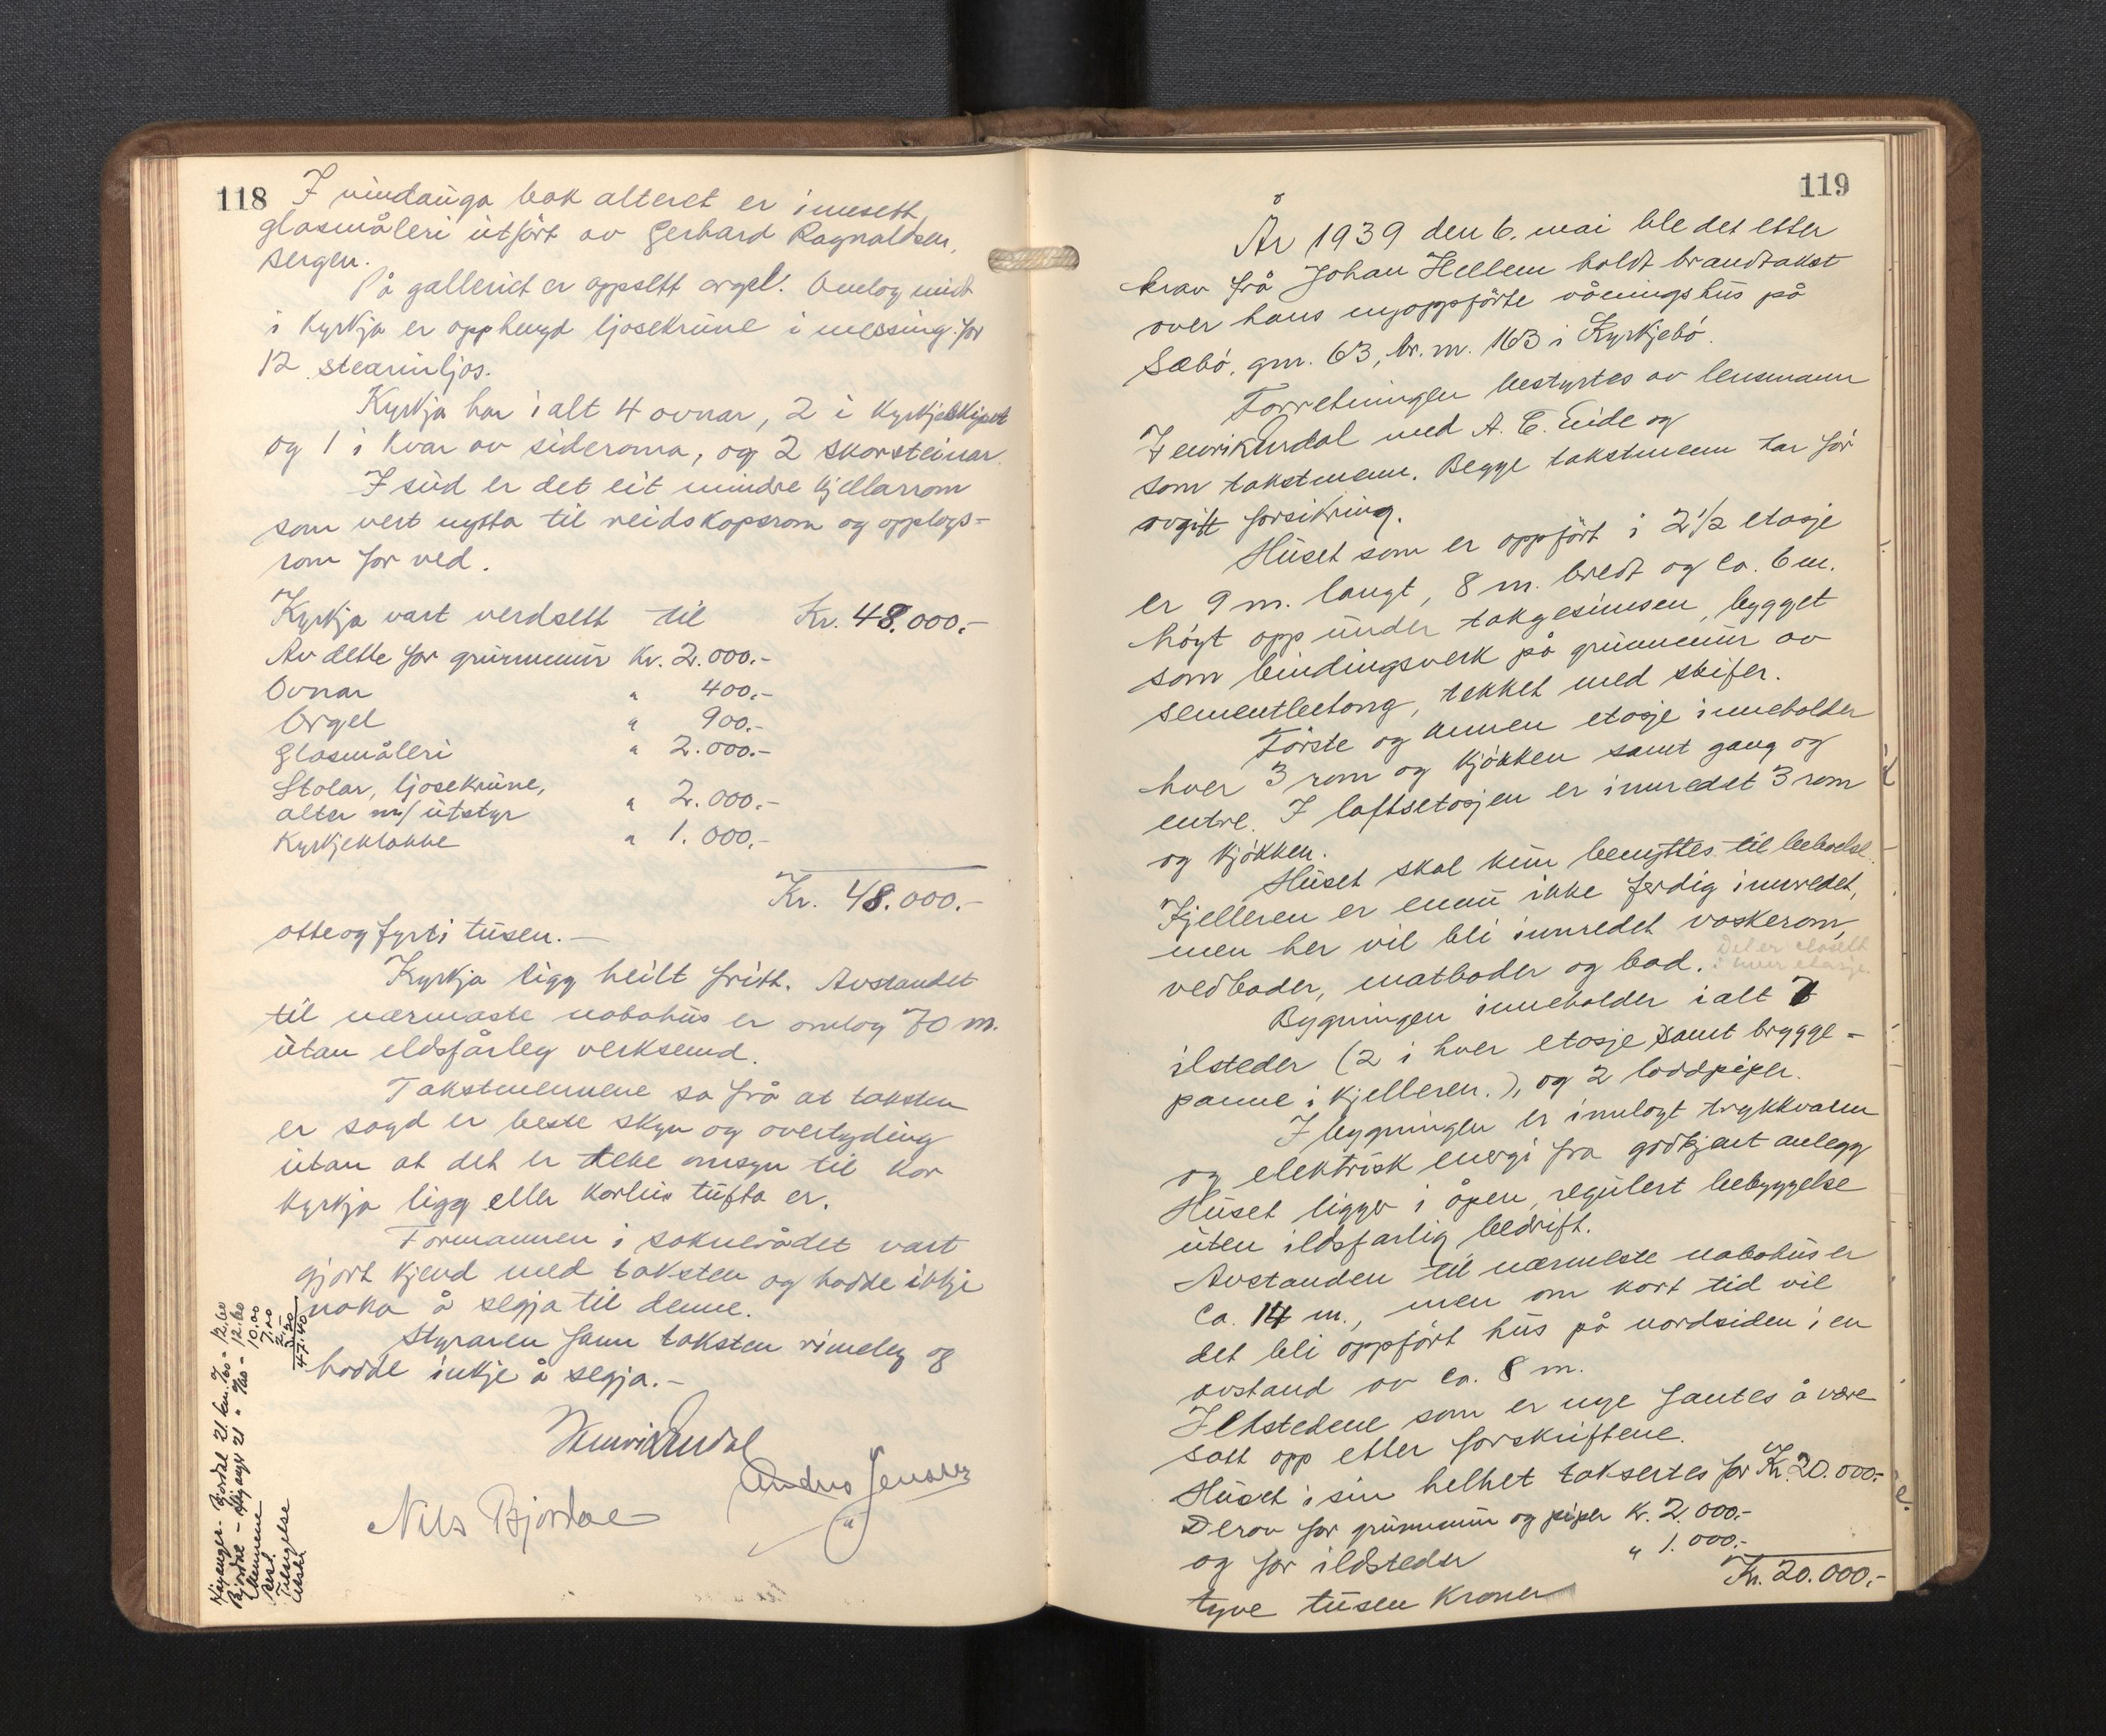 118
I vindauga bak alteret er innsett
glasmåleri utført av Gerhard Ragnaldsen,
Bergen.
På galleriet er oppsett orgel. Omlag midt
i kyrkja er opphengd ljosekrune i messing for
12 stearinljos.
Kyrkja har ialt 4 ovnar, 2 i kyrkjeskipet
og 1 i kvar av sideroma, og 2 skorsteinar.
I süd er det eit mindre kjellarrom
som vert nytta til reidskapsrom og opplags-
rom for ved.
Kyrkja vart verdsett til Kr. 48.000.-
Av dette for grunnmur Kr. 2.000.-
Ovnar " 400.-
Orgel " 900.-
Glasmåleri " 2.000.-
Stolar, ljosekrune,
alter m/ utstyr " 2.000.-
Kyrkjeklokke " 1.000.-
Kr. 48.000.-
otteogfyrti tusen.-
Kyrkja ligg heilt fritt. Avstandet
til nærmaste nabohus er omlag 70 m.
utan eldsfårleg verksemd.
Takstmennene sa frå at taksten
er sagd er beste skyn og overtyding
utan at det er teke omsyn til kor
kyrkja ligg eller korleis tufta er.
Formannen i soknerådet vart
gjort kjend med taksten og hadde ikkje
noko å segja til denne.
Styraren fann taksten rimeleg og
hadde inkje å segja.-
Henrik Undal
Andres Jensen
Nils Bjordal
Kyrjanger - Bjordal 21 km. 7/60 = 12.60
Bjordal - 21 " 7/60 = 12.60
Mennene 10.00
7.00
Tilsigelse 2.-
47.40
119
År 1939 den 6. mai ble det etter
krav frå Johan Hellem holdt brandtakst
over hans nyoppførte våningshus på
Sæbø, gnr. 63, br. nr. 163 i Kyrkjebø.
Forretningen bestyrtes av lensmann
Henrik Undal med A. E. Eide og
som takstmenn. Begge takstmenn har før
avgitt forsikring.
Huset som er oppført i 2 1/2 etasje
er 9 m. langt, 8 m. bredt og ca. 6 m.
høyt opp under takgesimsen, bygget
som bindingsverk på grunnmur av
sementbetong, tekket med skifer.
Første og annen etasje inneholder
hver 3 rom og kjøkken samt gang og
entre. I loftsetasjen er innredet 3 rom
og kjøkken.
Huset skal kun benyttes til beboelse.
Kjelleren er ennu ikke ferdig innredet,
men her vil bli innredet vaskerom,
vedboder, matboder og bad. Det er closett
i hver etasje.
Bygningen inneholder ialt 7
ilsteder (2 i hver etasje samt brygge-
panne i kjelleren.), og 2 loddpiper.
I bygningen er innlagt trykkvann
og elektrisk energi fra godkjent anlegg
Huset ligger i åpen, regulert bebyggelse
uten ildsfarlig bedrift.
Avstanden til nærmeste nabohus er
ca. 14 m., men om kort tid vil
det bli oppført hus på nordsiden i en
avstand av ca. 8 m.
Ildstedene som er nye fantes å være
satt opp etter forskriftene.
Huset i sin helhet taksertes for Kr. 20.000.-
Derav for grunnmur og piper Kr. 2.000.-
og for ildsteder " 1.000.-
Kr. 20.000.-
tyve tusen kroner